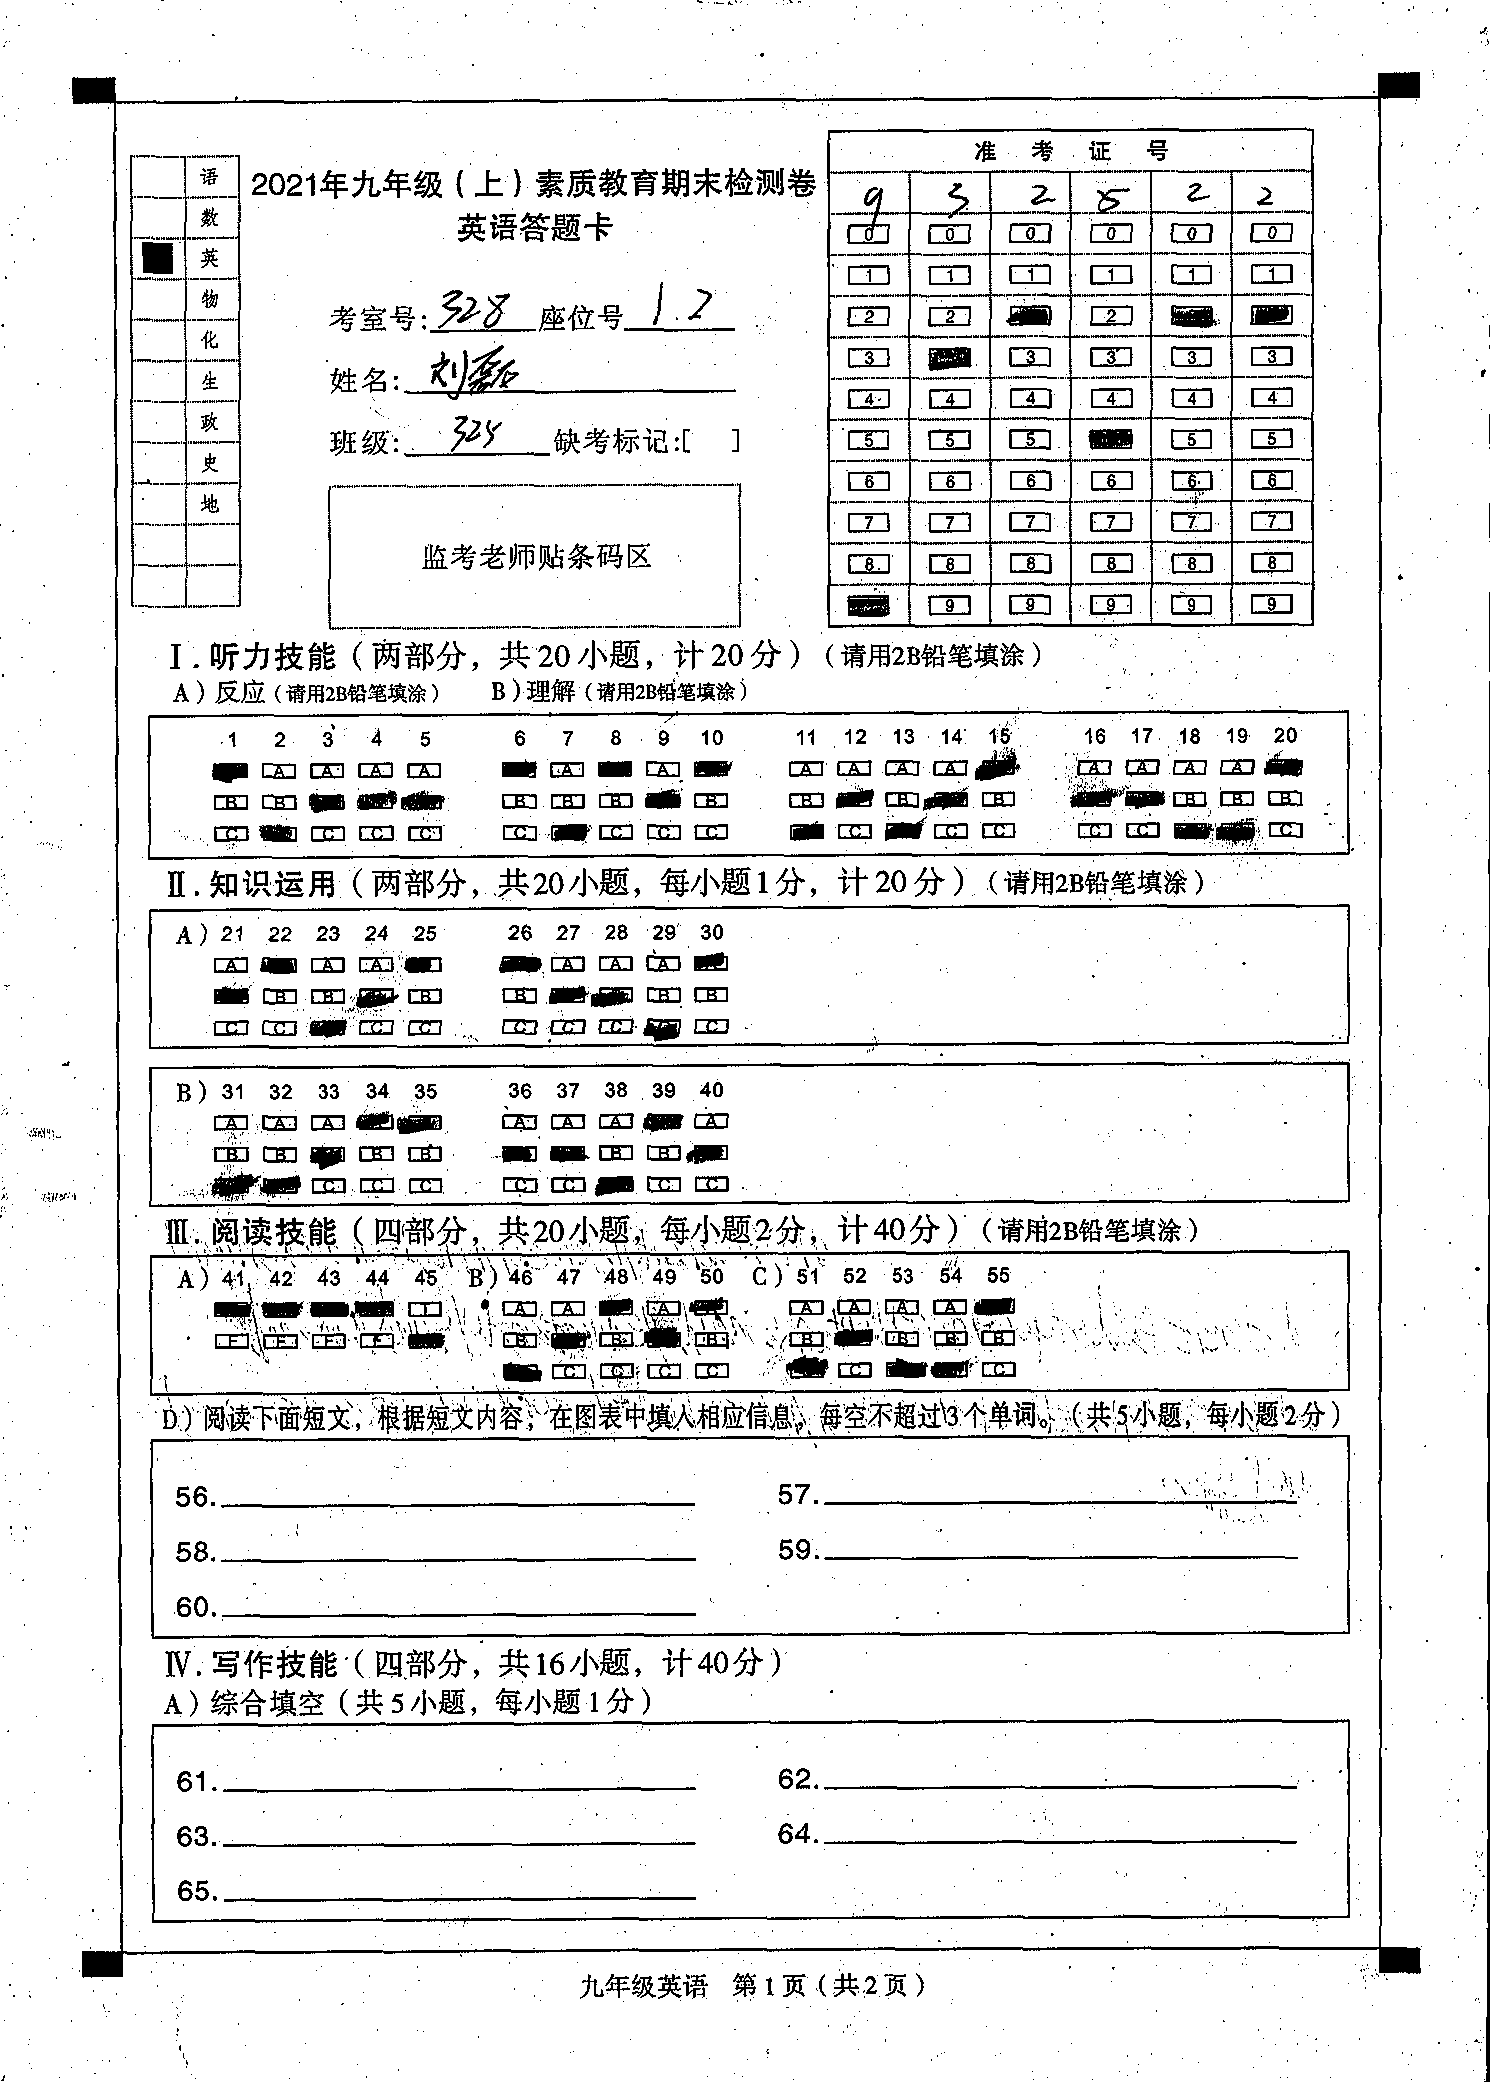 语
数
英
物
化
生
政
史
地
2021年九年级（上）素质教育期末检测卷
英语答题卡
考室号:328 座位号 1.2
姓名:刘磊
班级:325 缺考标记:[ ]
监考老师贴条码区
准 考 证 号
9 3 2 5 2 2
[0] [0] [0] [0] [0] [0]
[1] [1] [1] [1] [1] [1]
[2] [2] [2]
[3] [3] [3] [3] [3]
[4] [4] [4] [4] [4] [4]
[5] [5] [5] [5] [5]
[6] [6] [6] [6] [6] [6]
[7] [7] [7] [7] [7] [7]
[8] [8] [8] [8] [8] [8]
[9] [9] [9] [9] [9]
Ⅰ.听力技能（两部分，共20小题，计20分）（请用2B铅笔填涂）
A）反应（请用2B铅笔填涂） B）理解（请用2B铅笔填涂）
1 2 3 4 5 6 7 8 9 10 11 12 13 14 15 16 17 18 19 20
[A] [A] [A] [A] [A] [A] [A] [A] [A] [A] [A] [A] [A] [A]
[B] [B] [B] [B] [B] [B] [B] [B] [B] [B] [B] [B]
[C] [C] [C] [C] [C] [C] [C] [C] [C] [C] [C] [C] [C] [C]
Ⅱ.知识运用（两部分，共20小题，每小题1分，计20分）（请用2B铅笔填涂）
A）21 22 23 24 25 26 27 28 29 30
[A] [A] [A] [A] [A] [A]
[B] [B] [B] [B] [B] [B]
[C] [C] [C] [C] [C] [C] [C] [C]
B）31 32 33 34 35 36 37 38 39 40
[A] [A] [A] [A] [A] [A] [A]
[B] [B] [B] [B] [B] [B]
[C] [C] [C] [C] [C] [C] [C]
Ⅲ.阅读技能（四部分，共20小题，每小题2分，计40分）（请用2B铅笔填涂）
A）41 42 43 44 45 B）46 47 48 49 50 C）51 52 53 54 55
[T] [A] [A] [A] [A] [A] [A] [A]
[F] [F] [F] [F] [B] [B] [B] [B] [B] [B] [B]
[C] [C] [C] [C] [C] [C]
D）阅读下面短文，根据短文内容，在图表中填入相应信息，每空不超过3个单词。（共5小题，每小题2分）
56. 57.
58. 59.
60.
Ⅳ.写作技能（四部分，共16小题，计40分）
A）综合填空（共5小题，每小题1分）
61. 62.
63. 64.
65.
九年级英语 第1页（共2页）